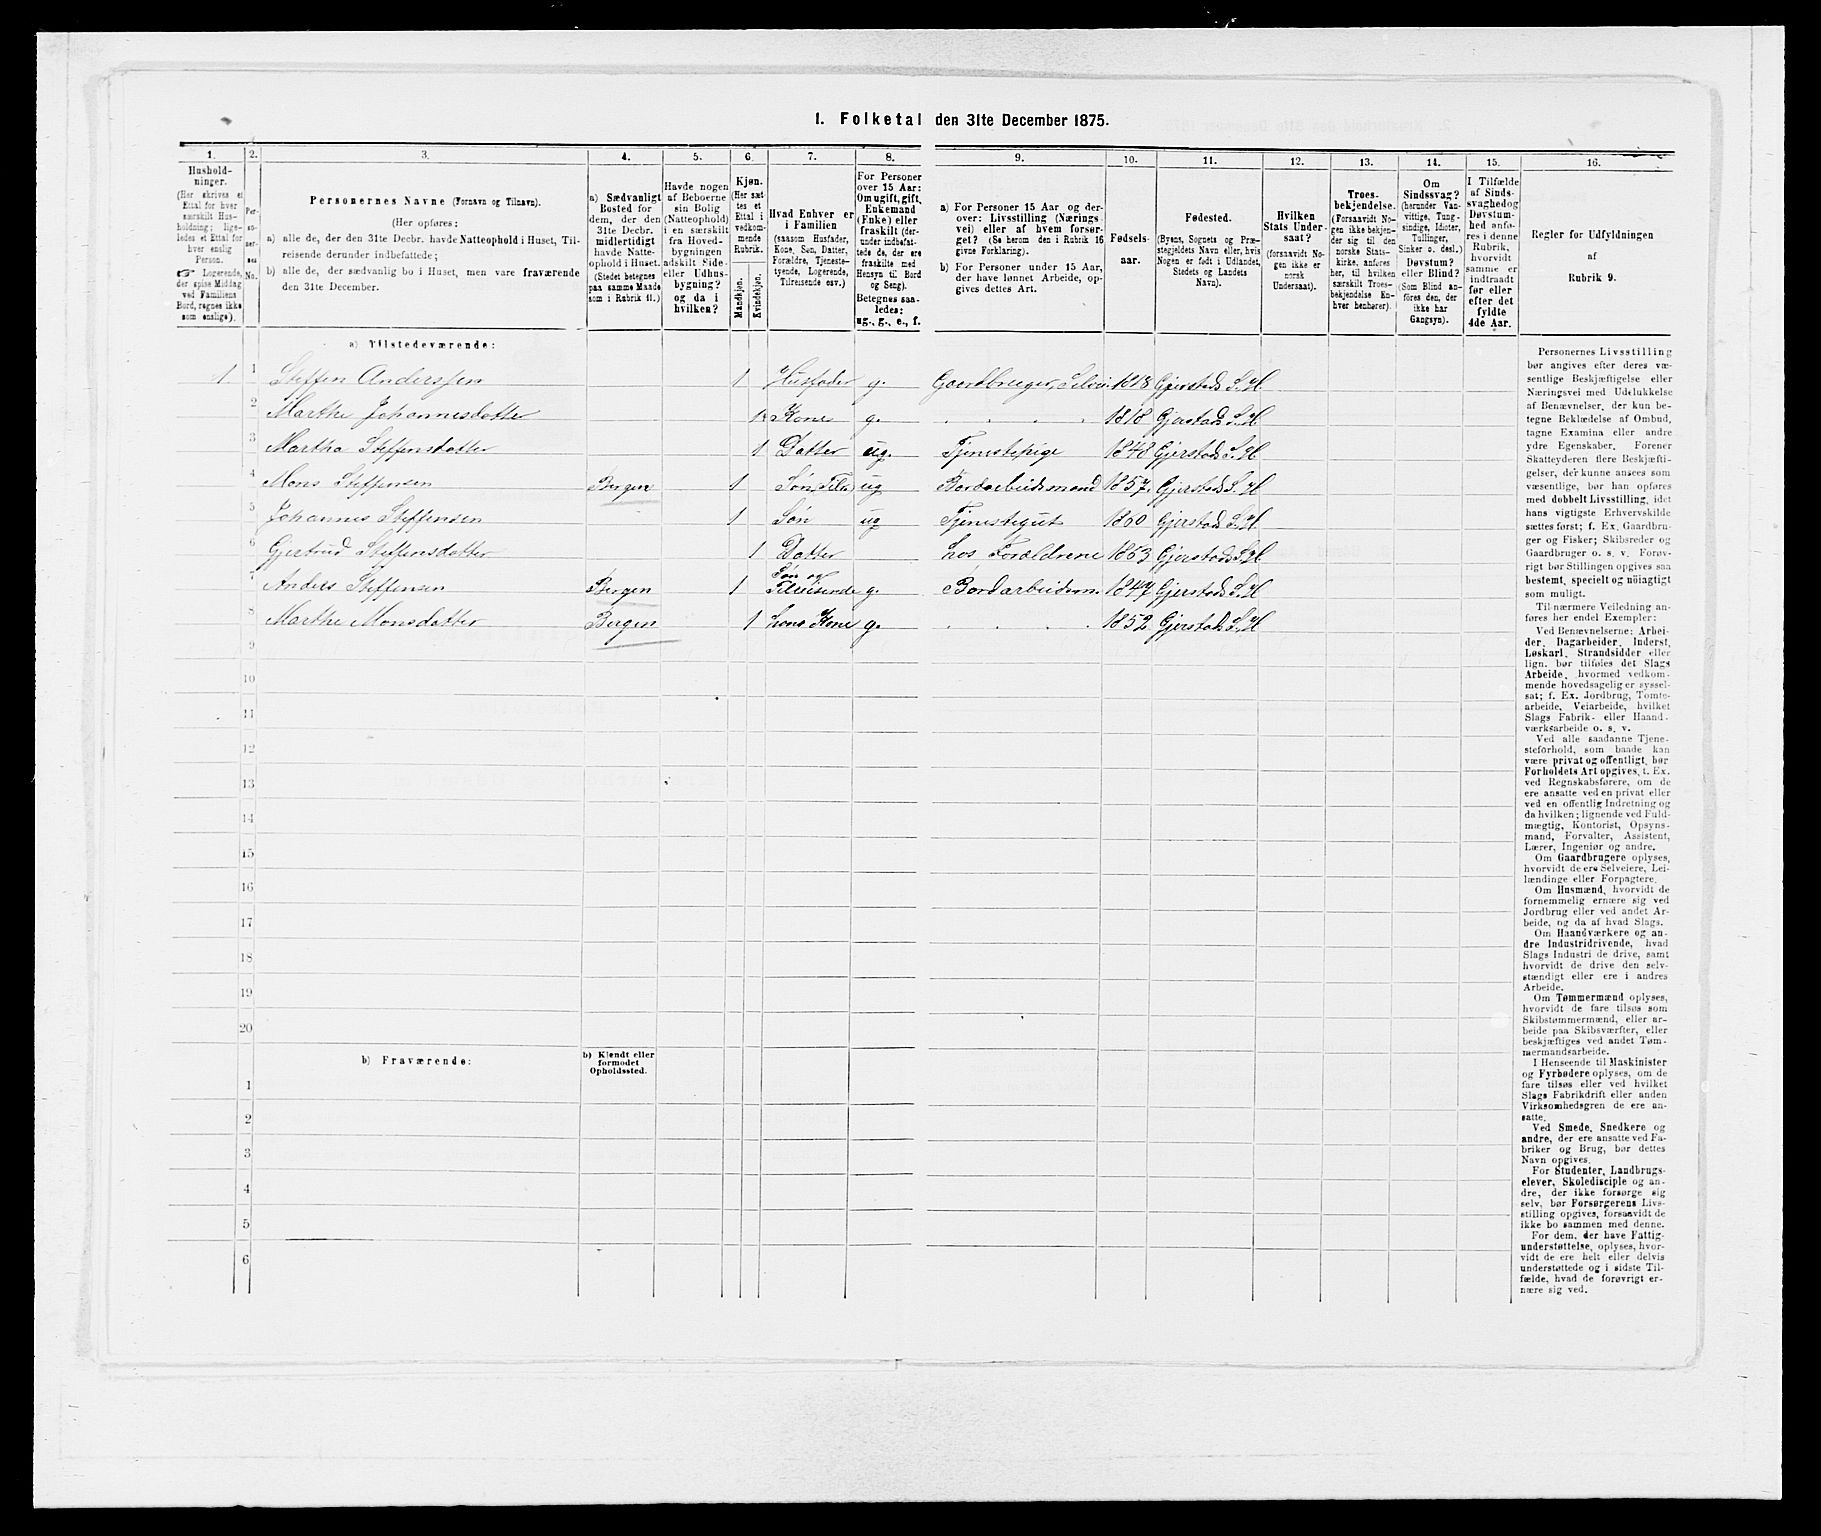 1. Folketal den 31te December 1875.
1. 2. 3. 4. 5. 6. 7. 8. 9. 10. 11. 12. 13. 14. 15. 16.
Hushold-
ninger.
(Her skrives et
Ettal for hver
særskilt Hus-
holdning; lige-
ledes et Ettal for
hver enslig
Person.
☞ Logerende,
der spise Middag
ved Familiens
Bord, regnes ikke
som enslige).
Per-
so-
ner-
nes
No.
Personernes Navne (Fornavn og Tilnavn).
(Her opføres:
a) alle de, der den 31te Decbr. havde Natteophold i Huset, Til-
reisende derunder indbefattede;
b) alle de, der sædvanlig bo i Huset, men vare fraværende
den 31te December.
a) Sædvanligt
Bosted for
dem, der den
31te Decbr.
midlertidigt
havde Natte-
ophold i Huset.
(Stedet betegnes
paa samme Maade
som i Rubrik 11.)
Havde nogen
af Beboerne
sin Bolig
(Natteophold)
i en særskilt
fra Hoved-
bygningen
adskilt Side-
eller Udhus-
bygning?
og da i
hvilken?
Kjøn.
(Her sæt-
tes et
Ettal i
vedkom-
mende
Rubrik.
Mandkjøn.
Kvindekjøn.
Hvad Enhver er
i Familien
(saasom Husfader,
Kone, Søn, Datter,
Forældre, Tjeneste-
tyende, Logerende,
Tilreisende osv.)
For Personer
over 15 Aar:
Om ugift, gift,
Enkemand
(Enke) eller
fraskilt (der-
under indbefat-
tede de, der ere
fraskilte med
Hensyn til Bord
og Seng).
Betegnes saa-
ledes:
ug., g., e., f.
a) For Personer 15 Aar og der-
over: Livsstilling (Nærings-
vei) eller af hvem forsør-
get? (Se herom den i Rubrik 16
givne Forklaring).
b) For Personer under 15 Aar,
der have lønnet Arbeide, op-
gives dettes Art.
Fødsels-
aar.
Fødested.
(Byens, Sognets og Præ-
stegjeldets Navn eller, hvis
Nogen er født i Udlandet,
Stedets og Landets
Navn).
Hvilken
Stats Under-
saat?
(forsaavidt No-
gen ikke er
norsk
Undersaat).
Troes-
bekjendelse.
(Forsaavidt No-
gen ikke bekjen-
der sig til den
norske Stats-
kirke, anføres
her, til hvilken
særskilt Troes-
bekjendelse En-
hver henhører).
Om
Sindssvag?
(herunder Van-
vittige, Tung-
sindige, Idioter,
Tullinger,
Sinker o. desl.)
Døvstum?
eller Blind?
(Som Blind an-
føres den, der
ikke har
Gangsyn).
I Tilfælde
af Sinds-
svaghed og
Døvstum-
hed anfø-
res i denne
Rubrik,
hvorvidt
samme er
indtraadt
før eller
efter det
fyldte
4de Aar.
Regler for Udfyldningen
af
Rubrik 9.
a) Tilstedeværende:
1. 1 Steffen Anderssen 1 Husfader g. Gaardbruger, Selvei. 1818 Gjerstads S. H
2 Marthe Johannesdatter 1 Kone g. . . . . 1818 Gjerstads S. H
3 Martha Steffensdatter 1 Datter ug. Tjenestepige 1848 Gjerstads S. H
4 Mons Steffensen Bergen 1 Søn, Tilr. ug Bordarbeidsmand 1857. Gjerstads S. H
5 Johannes Steffensen 1 Søn ug Tjenestegut 1860 Gjerstads S. H
6 Gjertrud Steffensdatter 1 Datter hos Forældrene 1863 Gjerstads S. H
7 Anders Steffensen Bergen 1 Søn og Tilreisende g. Bordarbeiderm. 1847 Gjerstads S. H
8 Marthe Monsdatter Bergen 1 hans Kone g. . . . . 1852 Gjerstads S. H
9
10
11
12
13
14
15
16
17
18
19
20
b) Fraværende:
b) Kjendt eller
formodet
Opholdssted.
1
2
3
4
5
6
Personernes Livsstilling
bør angives efter deres væ-
sentlige Beskjæftigelse eller
Næringsvei med Udelukkelse
af Benævnelser, der kun be-
tegne Beklædelse af Ombud,
tagne Examina eller andre
ydre Egenskaber. Forener
Skatteyderen flere Beskjæfti-
gelser, der kunne ansees som
væsentlige, bør han opføres
med dobbelt Livsstilling, idet
hans vigtigste Erhvervskilde
sættes først; f. Ex. Gaardbru-
ger og Fisker; Skibsreder og
Gaardbruger o. s. v. Forøv-
rigt bør Stillingen opgives saa
bestemt, specielt og nöiagtigt
som muligt.
Til nærmere Veiledning an-
føres her endel Exempler:
Ved Benævnelserne: Arbei-
der, Dagarbeider, Inderst,
Løskarl, Strandsidder eller
lign. bør tilføies det Slags
Arbeide, hvormed vedkom-
mende hovedsagelig er syssel-
sat; f. Ex. Jordbrug, Tomte-
arbeide, Veiarbeide, hvilket
Slags Fabrik- eller Haand-
værksarbeide o. s. v.
Ved alle saadanne Tjene-
steforhold, som baade kan
være privat og offentligt, bør
Forholdets Art opgives, t. Ex.
ved Regnskabsførere, om de
ere ansatte ved en privat eller
ved en offentlig Indretning og
da hvilken; lignende ved Fuld-
mægtig, Kontorist, Opsyns-
mand, Forvalter, Assistent,
Lærer, Ingeniør og andre.
Om Gaardbrugere oplyses,
hvorvidt de ere Selveiere, Lei-
lændinge eller Forpagtere.
Om Husmænd, hvorvidt de
fornemmelig ernære sig ved
Jordbrug eller ved andet Ar-
beide, og da af hvad Slags.
Om Haandværkere og an-
dre Industridrivende, hvad
Slags Industri de drive, samt
hvorvidt de drive den selv-
stændigt eller ere i andres
Arbeide.
Om Tømmermænd oplyses,
hvorvidt de fare tilsøs som
Skibstømmermænd, eller ar-
beide paa Skibsværfter, eller
beskjæftiges ved andet Tøm-
mermandsarbeide.
I Henseende til Maskinister
og Fyrbødere oplyses, om de
fare tilsøs eller ved hvilket
Slags Fabrikdrift eller anden
Virksomhedsgren de ere an-
satte.
Ved Smede, Snedkere og
andre, der ere ansatte ved Fa-
briker og Brug, bør dettes
Navn opgives.
For Studenter, Landbrugs-
elever, Skoledisciple og an-
dre, der ikke forsørge sig
selv, bør Forsørgerens Livs-
stilling opgives, forsaavidt de
ikke bo sammen med denne.
For dem, der have Fattig-
understøttelse, oplyses, hvor-
vidt de ere helt eller delvis
understøttede og i sidste Til-
fælde, hvad de forøvrigt er-
nære sig ved.